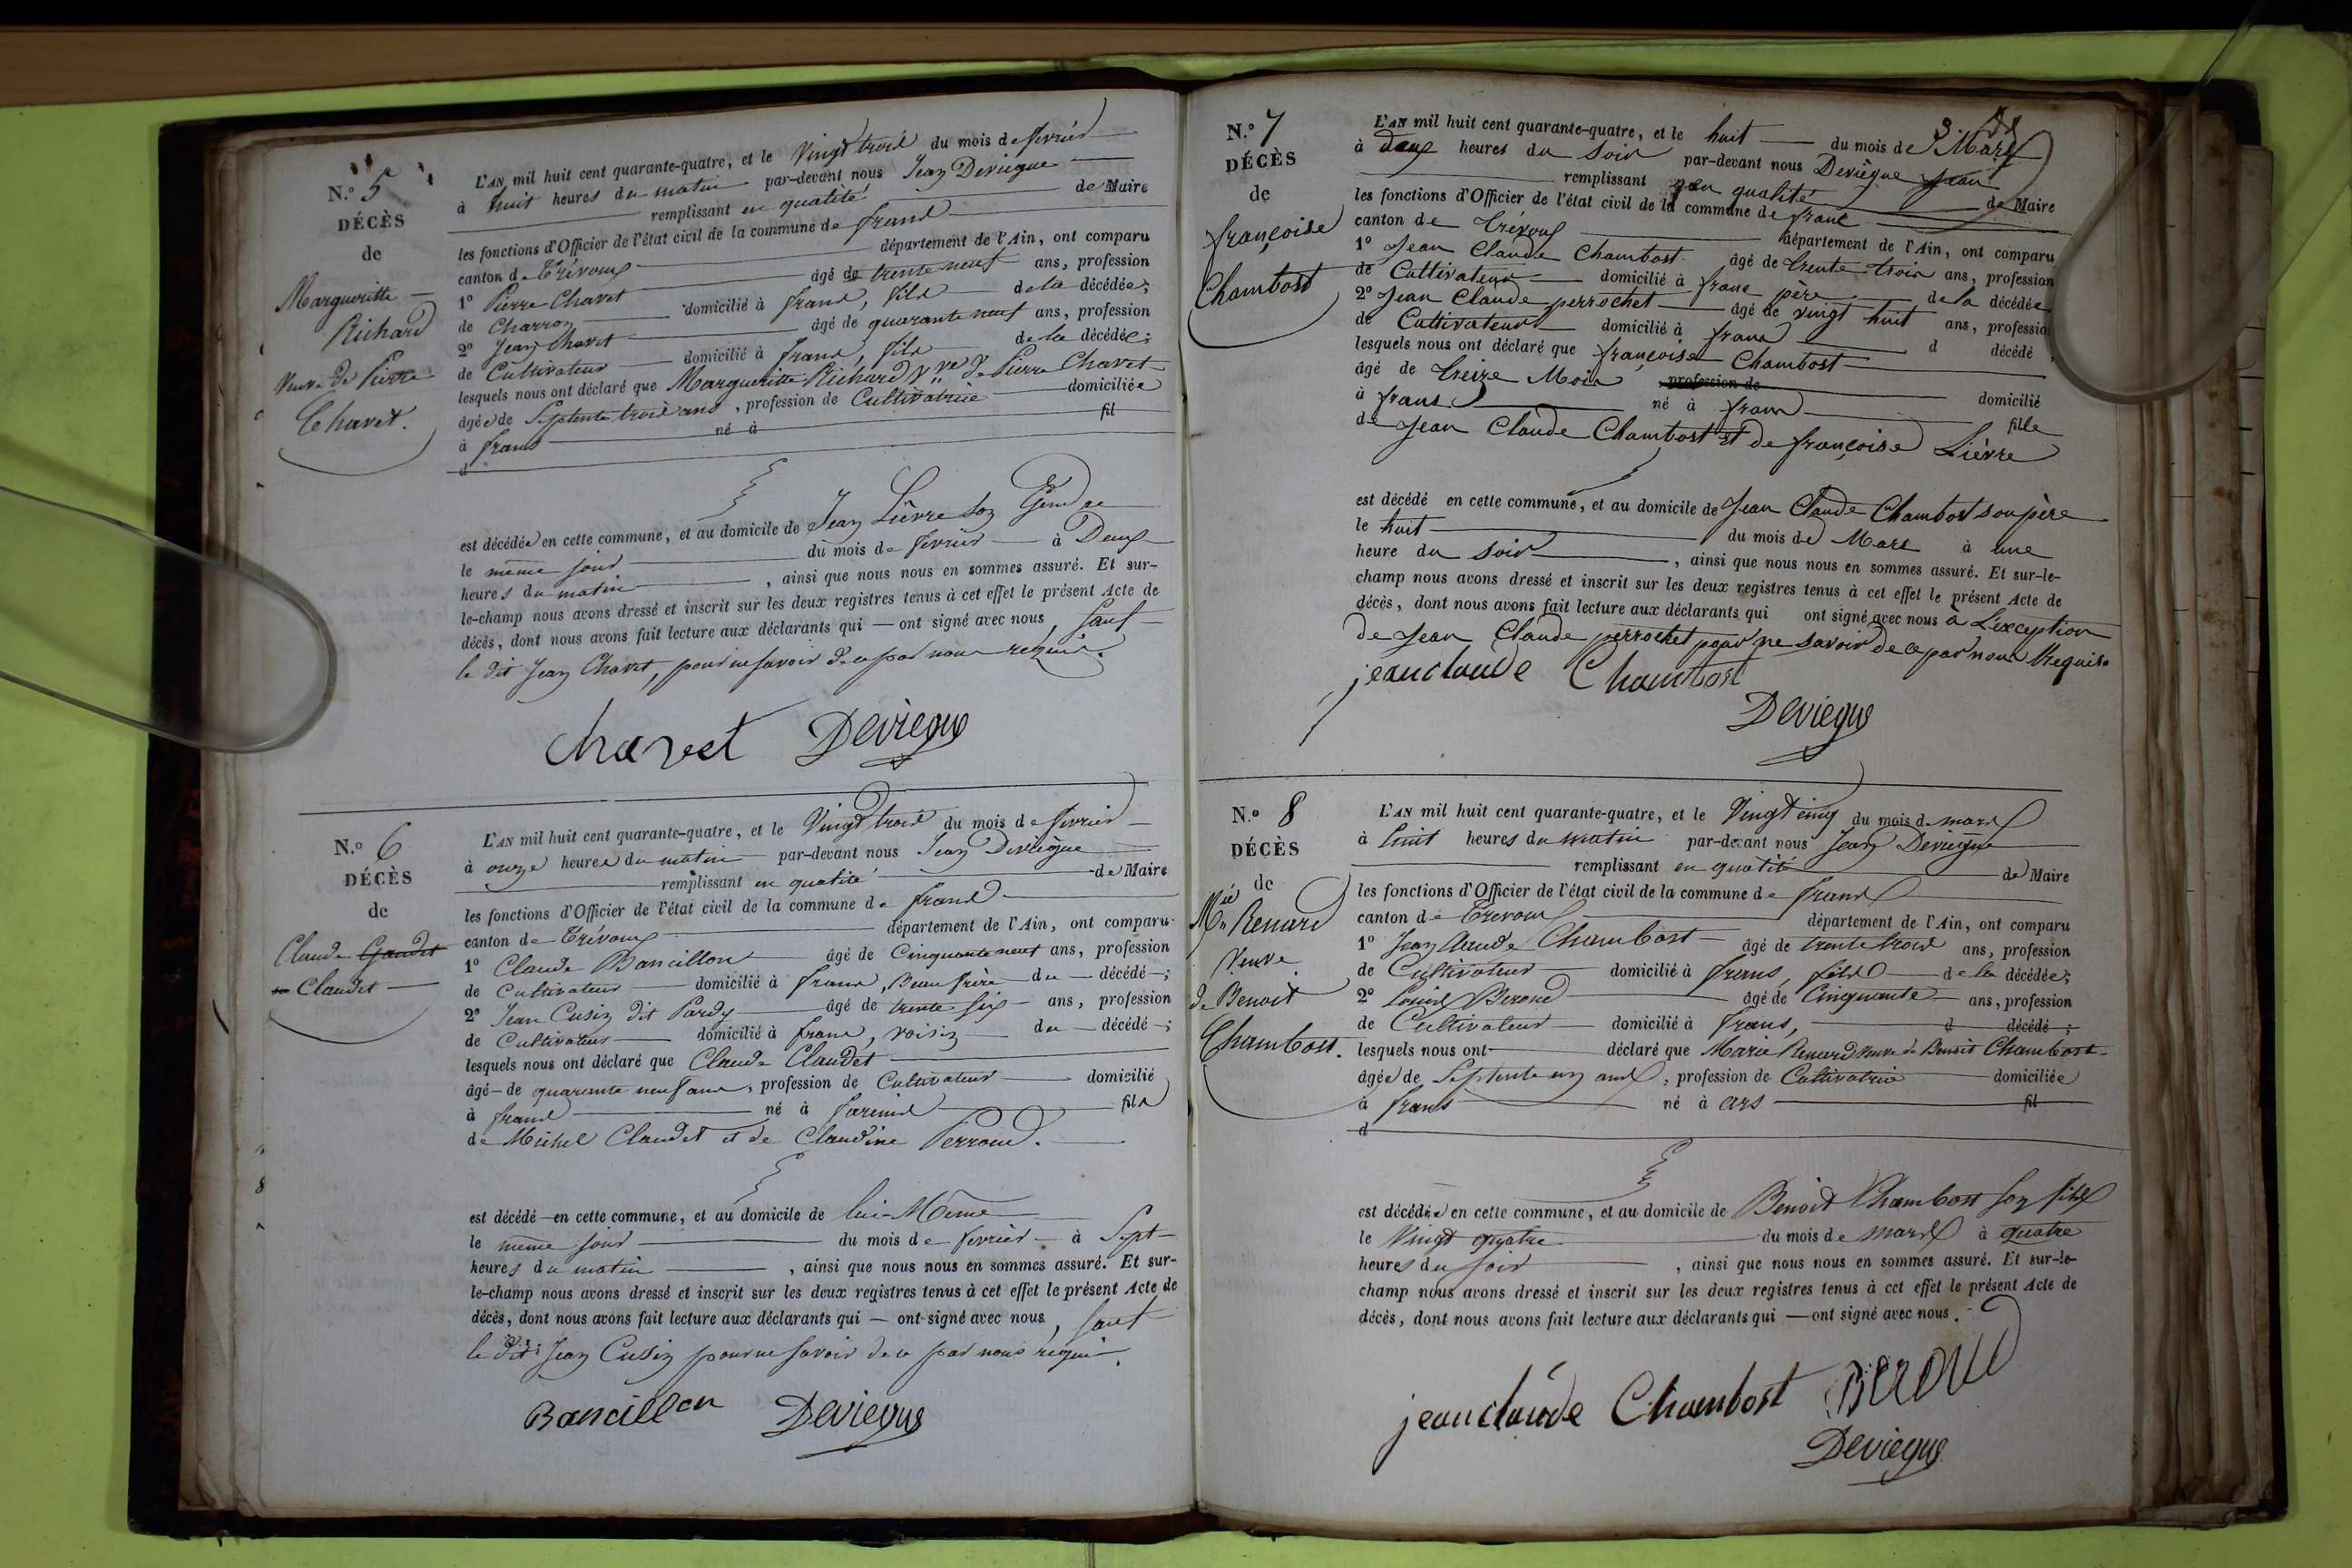 N.º 5
DÉCÈS
de
Margueritte
Richard
Veuve de Pierre
Chavet.
L'AN mil huit cent quarante-quatre, et le Vingt trois du mois de fevrier
à huit heures du matin par-devant nous Jean Deviegue
remplissant en qualité de Maire
les fonctions d'Officier de l'état civil de la commune de frans
canton de Trévoux département de l'Ain, ont comparu
1º Pierre Chavet âgé de trente neuf ans, profession
de Charron domicilié à frans, fils de la décédée;
2º Jean Chavet âgé de quarante neuf ans, profession
de Cultivateur domicilié à frans, fils de la décédée;
lesquels nous ont déclaré que Margueritte Richard Vve de Pierre Chavet
âgée de Septente trois ans, profession de Cultivatrice domiciliée
à frans né à fil
d
est décédée en cette commune, et au domicile de Jean Lièvre son Gendre
le même jour du mois de fevrier à Deux
heures du matin, ainsi que nous nous en sommes assuré. Et sur-
le-champ nous avons dressé et inscrit sur les deux registres tenus à cet effet le présent Acte de
décès, dont nous avons fait lecture aux déclarants qui — ont signé avec nous, sauf
le dit Jean Chavet, pour ne savoir de ce par nous requis.
Chavet Deviegue
N.º 6
DÉCÈS
de
Claude Gaudet
Claudet
L'AN mil huit cent quarante-quatre, et le Vingt trois du mois de fevrier
à onze heures du matin par-devant nous Jean Deviegue
remplissant en qualité de Maire
les fonctions d'Officier de l'état civil de la commune de frans
canton de Trévoux département de l'Ain, ont comparu
1º Claude Bancillon âgé de Cinquante neuf ans, profession
de Cultivateur domicilié à frans, Beau frère du décédé;
2º Jean Cusin dit Pardy âgé de trente six ans, profession
de Cultivateur domicilié à frans, voisin du décédé;
lesquels nous ont déclaré que Claude Claudet
âgé de quarante neuf ans, profession de Cultivateur domicilié
à frans né à fareins fils
de Michel Claudet et de Claudine Perroud.
est décédé en cette commune, et au domicile de lui-Même
le même jour du mois de fevrier à Sept
heures du matin, ainsi que nous nous en sommes assuré. Et sur-
le-champ nous avons dressé et inscrit sur les deux registres tenus à cet effet le présent Acte de
décès, dont nous avons fait lecture aux déclarants qui — ont signé avec nous, sauf
le dit Jean Cusin pour ne savoir de ce par nous requis.
Bancillon Deviegue
N.º 7
DÉCÈS
de
françoise
Chambost
L'AN mil huit cent quarante-quatre, et le huit du mois de Mars
à deux heures du soir par-devant nous Deviègue Jean
remplissant en qualité de Maire
les fonctions d'Officier de l'état civil de la commune de frans
canton de Trévoux département de l'Ain, ont comparu
1º Jean Claude Chambost âgé de trente-trois ans, profession
de Cultivateur domicilié à frans père de la décédée
2º Jean Claude perrochet âgé de vingt huit ans, profession
de Cultivateur domicilié à frans d décédé
lesquels nous ont déclaré que françoise Chambost
âgé de treize Mois profession de domicilié
à frans né à frans fille
de Jean Claude Chambost et de françoise Lièvre
est décédé en cette commune, et au domicile de Jean Claude Chambost son père
le huit du mois de Mars à une
heure du soir, ainsi que nous nous en sommes assuré. Et sur-le-
champ nous avons dressé et inscrit sur les deux registres tenus à cet effet le présent Acte de
décès, dont nous avons fait lecture aux déclarants qui ont signé avec nous à L'exception
de Jean Claude perrochet pour ne savoir de ce par nous Requis.
jean claude Chambost
Deviegue
N.º 8
DÉCÈS
de
Mie Renard
Veuve
de Benoit
Chambost.
L'AN mil huit cent quarante-quatre, et le Vingt cinq du mois de mars
à huit heures du matin par-devant nous Jean Deviegue
remplissant en qualité de Maire
les fonctions d'Officier de l'état civil de la commune de frans
canton de Trevoux département de l'Ain, ont comparu
1º Jean Claude Chambost âgé de trente trois ans, profession
de Cultivateur domicilié à frans, fils de la décédée;
2º Louis Beroud âgé de Cinquante ans, profession
de Cultivateur domicilié à frans, d décédé;
lesquels nous ont déclaré que Marie Renard Veuve de Benoit Chambost
âgée de Septente un ans, profession de Cultivatrice domiciliée
à frans né à ars fil
d
est décédée en cette commune, et au domicile de Benoit Chambost son fils
le Vingt quatre du mois de mars à quatre
heures du soir, ainsi que nous nous en sommes assuré. Et sur-le-
champ nous avons dressé et inscrit sur les deux registres tenus à cet effet le présent Acte de
décès, dont nous avons fait lecture aux déclarants qui — ont signé avec nous.
jean claude Chambost Beroud
Deviegue